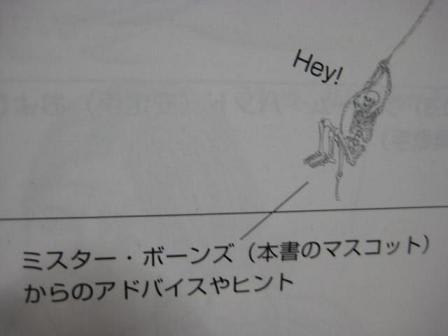 Hey!
ミスター・ボーンズ（本書のマスコット）
からのアドバイスやヒント